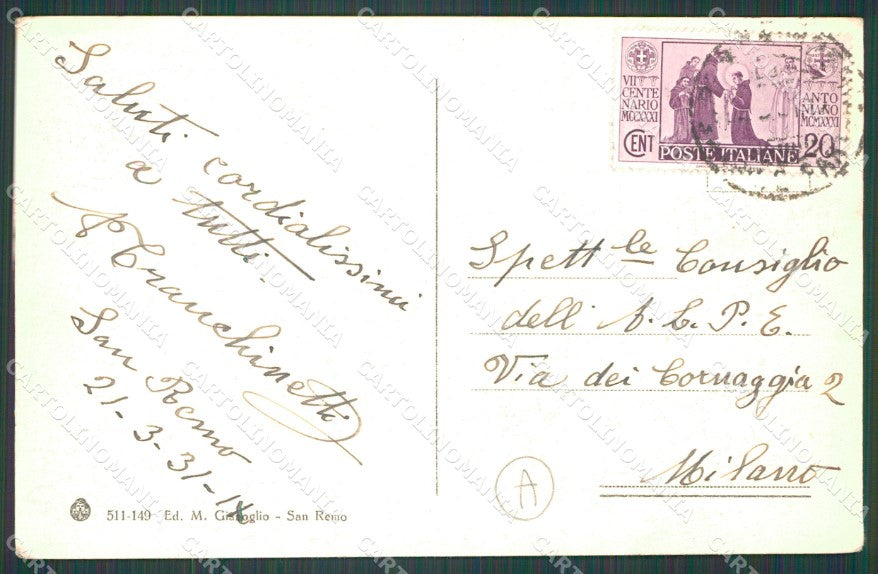 Saluti cordialissimi
a tutti.
San Remo
21-3-31-IX
511-149 Ed. M. Giacoglio - San Remo
VII
CENTE
NARIO
MCCXXXI
ANTO
NIANO
MCMXXXI
CENT
POSTE ITALIANE
20
Spett le Consiglio
dell' A. L. P. E.
Via dei Cornaggia 2
Milano
A
CARTOLINOMANIA